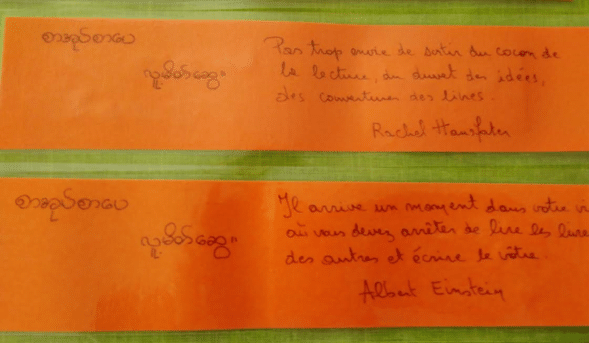 စာအုပ်စာပေ
လူ့မိတ်ဆွေ။
Pas trop envie de sortir du cocon de
la lecture, du duvet des idées,
des couvertures des livres.
Rachel Hausfater
စာအုပ်စာပေ
လူ့မိတ်ဆွေ။
Il arrive un moment dans votre
où vous devez arrêter de lire les
des autres et écrire le vôtre.
Albert Einstein